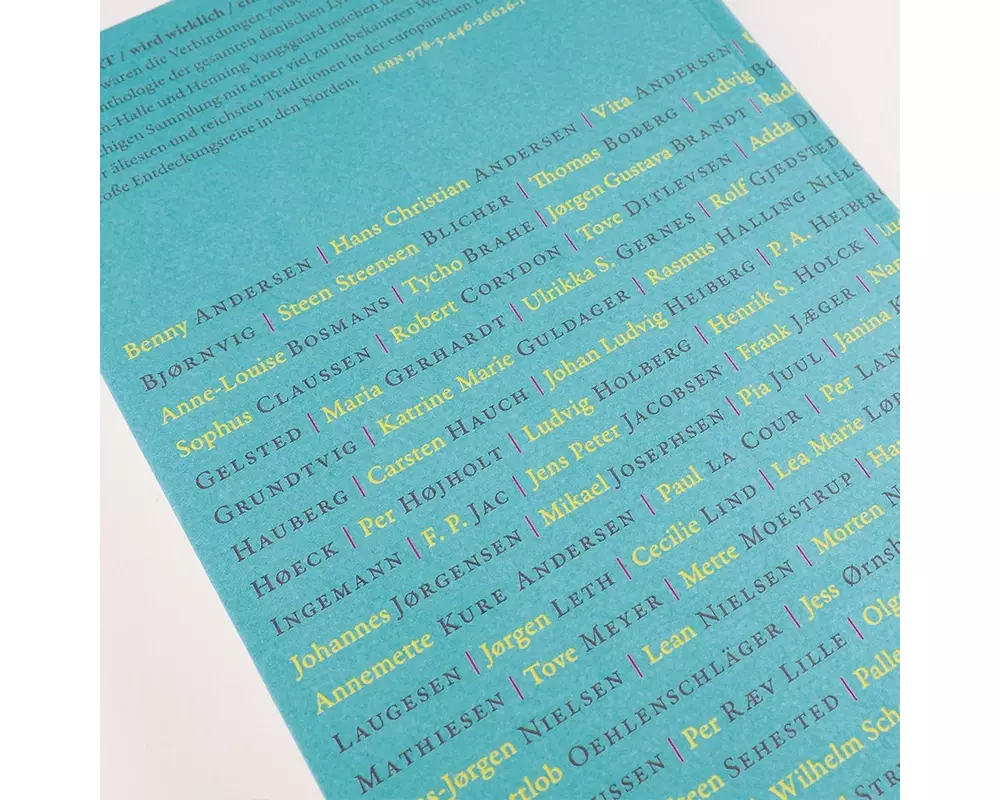 RT / wird wirklich / ein
waren die Verbindungen zwisc
nthologie der gesamten dänischen Lyr
n-Halle und Henning Vangsgaard machen
higen Sammlung mit einer viel zu unbekannten We
r ältesten und reichsten Traditionen in der europäischen
oße Entdeckungsreise in den Norden.
ISBN 978-3-446-26626-1
Benny ANDERSEN | Hans Christian ANDERSEN | Vita ANDERSEN |
BJØRNVIG | Steen Steensen BLICHER | Thomas BOBERG | Ludvig
Anne-Louise BOSMANS | Tycho BRAHE | Jørgen Gustava BRANDT |
Sophus CLAUSSEN | Robert CORYDON | Tove DITLEVSEN | Adda
GELSTED | Maria GERHARDT | Ulrikka S. GERNES | Rolf GJEDSTED
GRUNDTVIG | Katrine Marie GULDAGER | Rasmus HALLING NIELS
HAUBERG | Carsten HAUCH | Johan Ludvig HEIBERG | P. A. HEIBERG
HØECK | Per HØJHOLT | Ludvig HOLBERG | Henrik S. HOLCK |
INGEMANN | F. P. JAC | Jens Peter JACOBSEN | Frank JÆGER |
Johannes JØRGENSEN | Mikael JOSEPHSEN | Pia JUUL | Janina
Annemette KURE ANDERSEN | Paul LA COUR | Per LANG
LAUGESEN | Jørgen LETH | Cecilie LIND | Lea Marie LØP
MATHIESEN | Tove MEYER | Mette MOESTRUP |
s-Jørgen NIELSEN | Lean NIELSEN | Morten
ttlob OEHLENSCHLÄGER | Jess ØRNSB
USSEN | Per RÆV LILLE | Olg
reen SEHESTED | Palle
Wilhelm Sch
STR